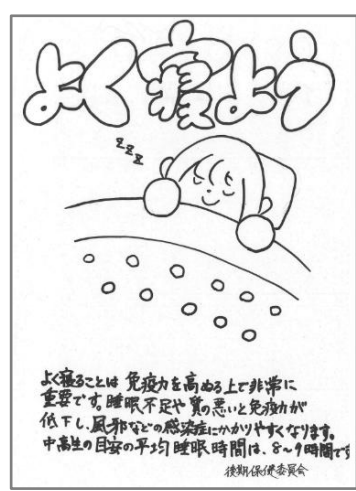 よく寝よう
zzz
よく寝ることは免疫力を高める上で非常に
重要です。睡眠不足や質の悪いと免疫力が
低下し、風邪などの感染症にかかりやすくなります。
中高生の目安の平均睡眠時間は、8〜9時間です
後期保健委員会